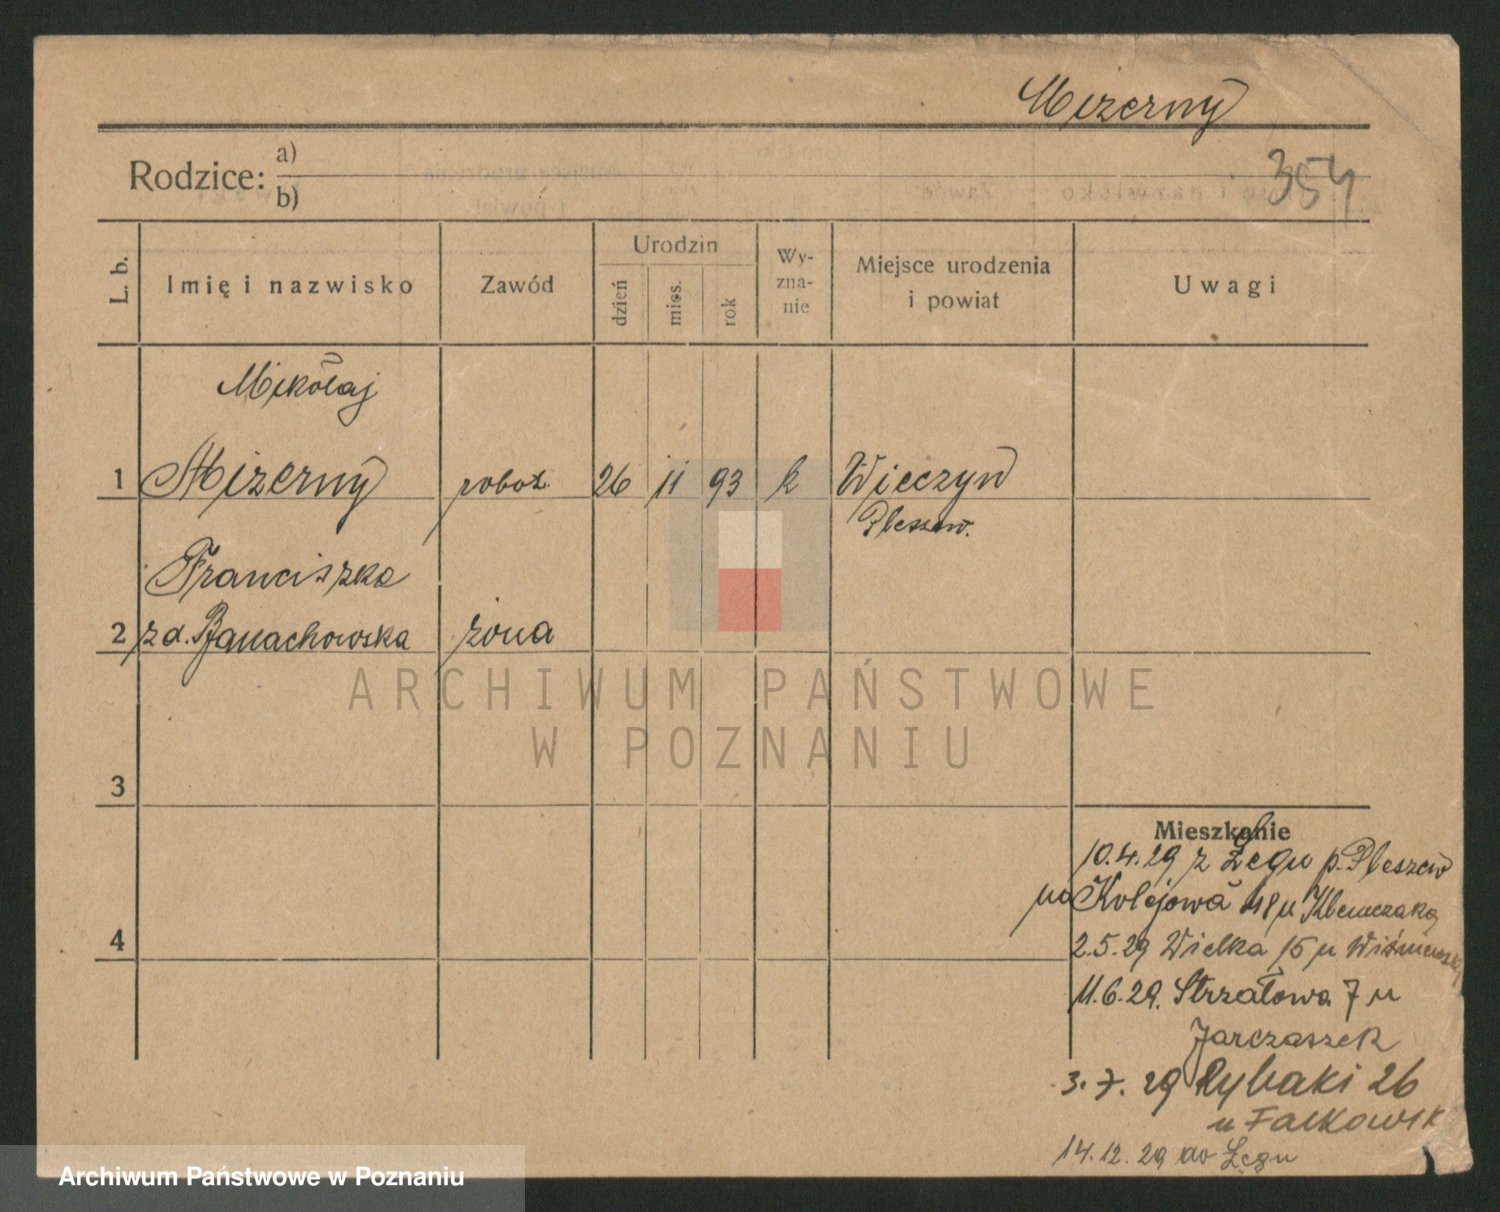 Mizerny
Rodzice: a)
b)
354
L. b.
Imię i nazwisko
Zawód
Urodzin
dzień
mies.
rok
Wy-
zna-
nie
Miejsce urodzenia
i powiat
Uwagi
Mikołaj
1 Mizerny robot. 26 11 93 k Wieczyn
Pleszew.
Franciszka
2 zd. Banachowska żona
ARCHIWUM PAŃSTWOWE
W POZNANIU
3
Mieszkanie
10.4.29 z Łęgu p. Pleszew
na Kolejową 48 u Klemczaka
4
2.5.29 Wielka 15 u
11.6.29. Strzałowa 7 u
Jarczaszek
3.7.29 Rybaki 26
u Falkowsk
14.12.29 do Łęgu
Archiwum Państwowe w Poznaniu